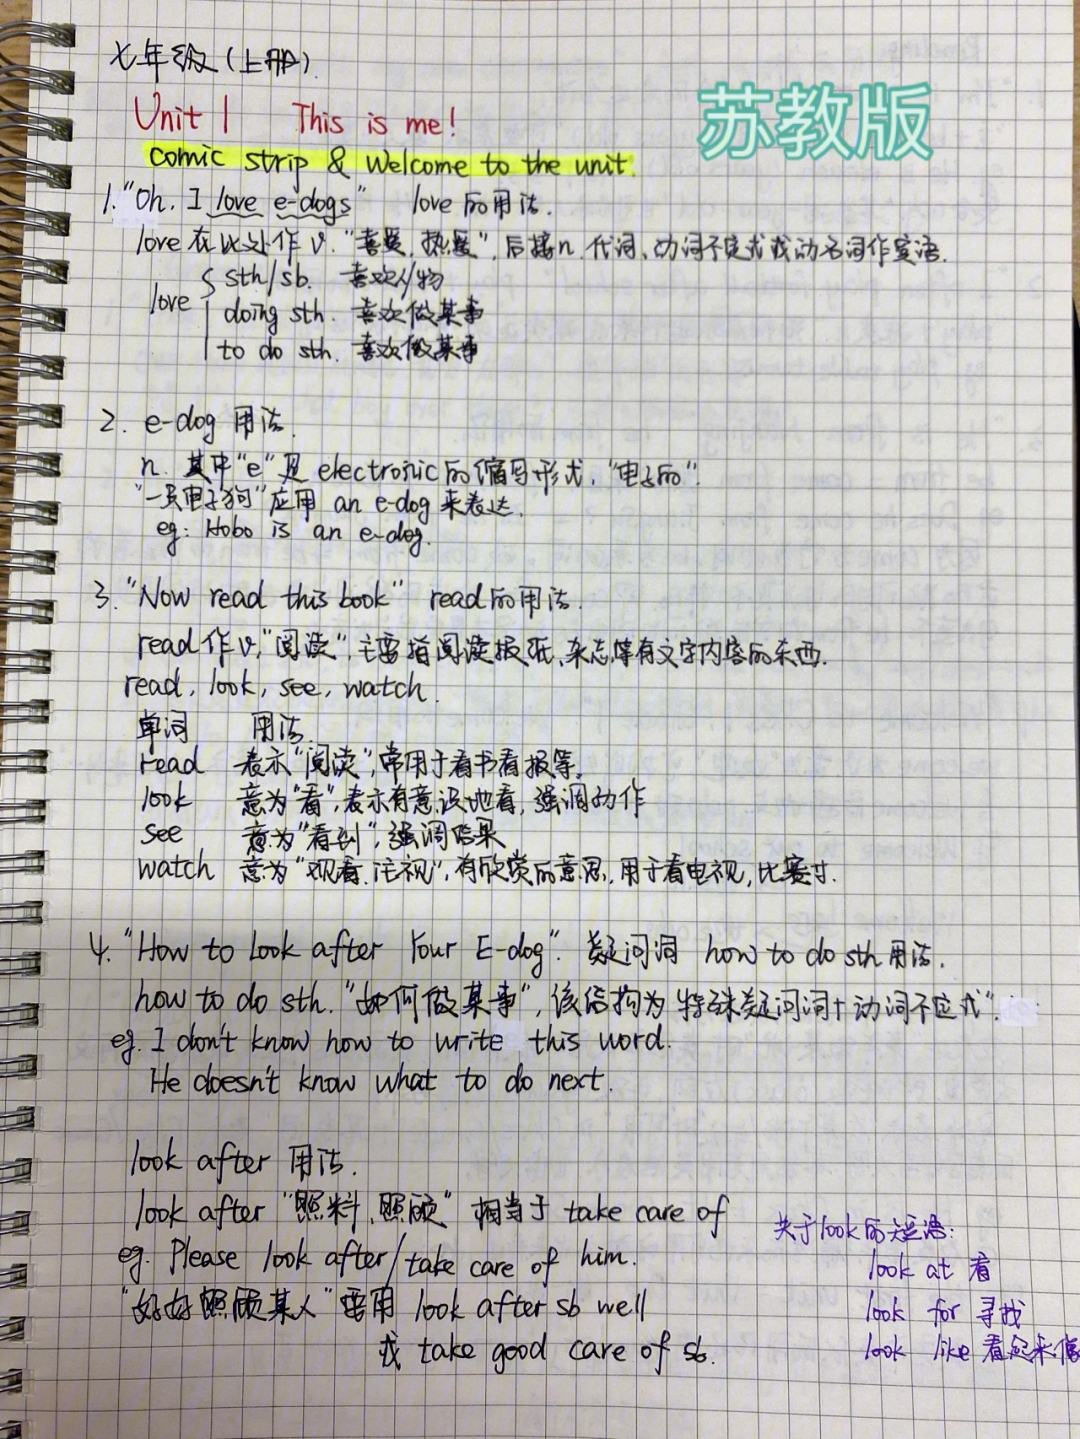 七年级(上册)
苏教版
Unit 1 This is me!
comic strip & Welcome to the unit.
1. "Oh, I love e-dogs" love的用法.
love在此处作v. "喜爱,热爱", 后接n.代词、动词不定式或动名词作宾语.
sth/sb. 喜欢人/物
love doing sth. 喜欢做某事
to do sth. 喜欢做某事
2. e-dog 用法.
n. 其中"e"是electronic的缩写形式, "电子的".
"一只电子狗"应用 an e-dog 来表达.
eg: Hobo is an e-dog.
3. "Now read this book" read的用法.
read作v, "阅读", 主要指阅读报纸、杂志等有文字内容的东西.
read, look, see, watch.
单词 用法.
read 表示"阅读", 常用于看书看报等.
look 意为"看", 表示有意识地看, 强调动作
see 意为"看到", 强调结果
watch 意为"观看、注视", 有欣赏的意思, 用于看电视, 比赛才.
4. "How to Look after Your E-dog". 疑问词 how to do sth用法.
how to do sth. "如何做某事", 该结构为"特殊疑问词+动词不定式".
eg. I don't know how to write this word.
He doesn't know what to do next.
look after 用法.
look after "照料、照顾" 相当于 take care of
eg. Please look after/take care of him.
"好好照顾某人"要用 look after sb well
或 take good care of sb.
关于look的短语:
look at 看
look for 寻找
look like 看起来像